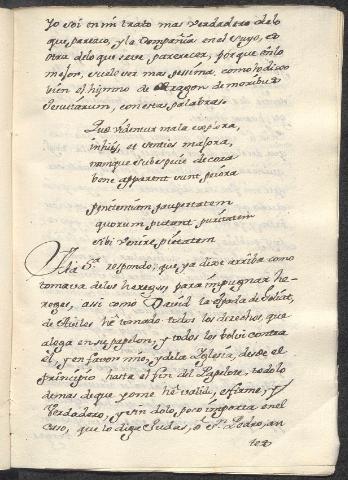 Yo soi en mi trato mas verdadero delo
que parezco, y la Compañia en el suyo, es
otra delo que seve parexcer, porque en lo
mejor, suelo ser mas pessima, como lo dixo
vien el hymno de Aragon de moribus
Jesuitárum, con estas palabras.
Quo videntur mala explora,
inhies, et senties majora,
namque sub specie decora
bene apparent sunt peióra
penitentiam paupertatem
quorum putant puritatem
sibi venire pietatem
A la 5.ª respondo; que ya dixe arriba como
tomava de los hereges, para impugnar he-
reges, assi como David la espada de Goliat,
de Aviles he tomado todos los derechos, que
alega en su papelon, y todos los bolvi contra
él, y en favor mio, y dela Yglesia, desde el
principio hasta el fin del Papelote, todo lo
demas de que yo me he validó, es firme, y
Verdadero, y sin dolo, poco importa en el
caso, que lo diga Judas, ó S.n Pedro, an
tes